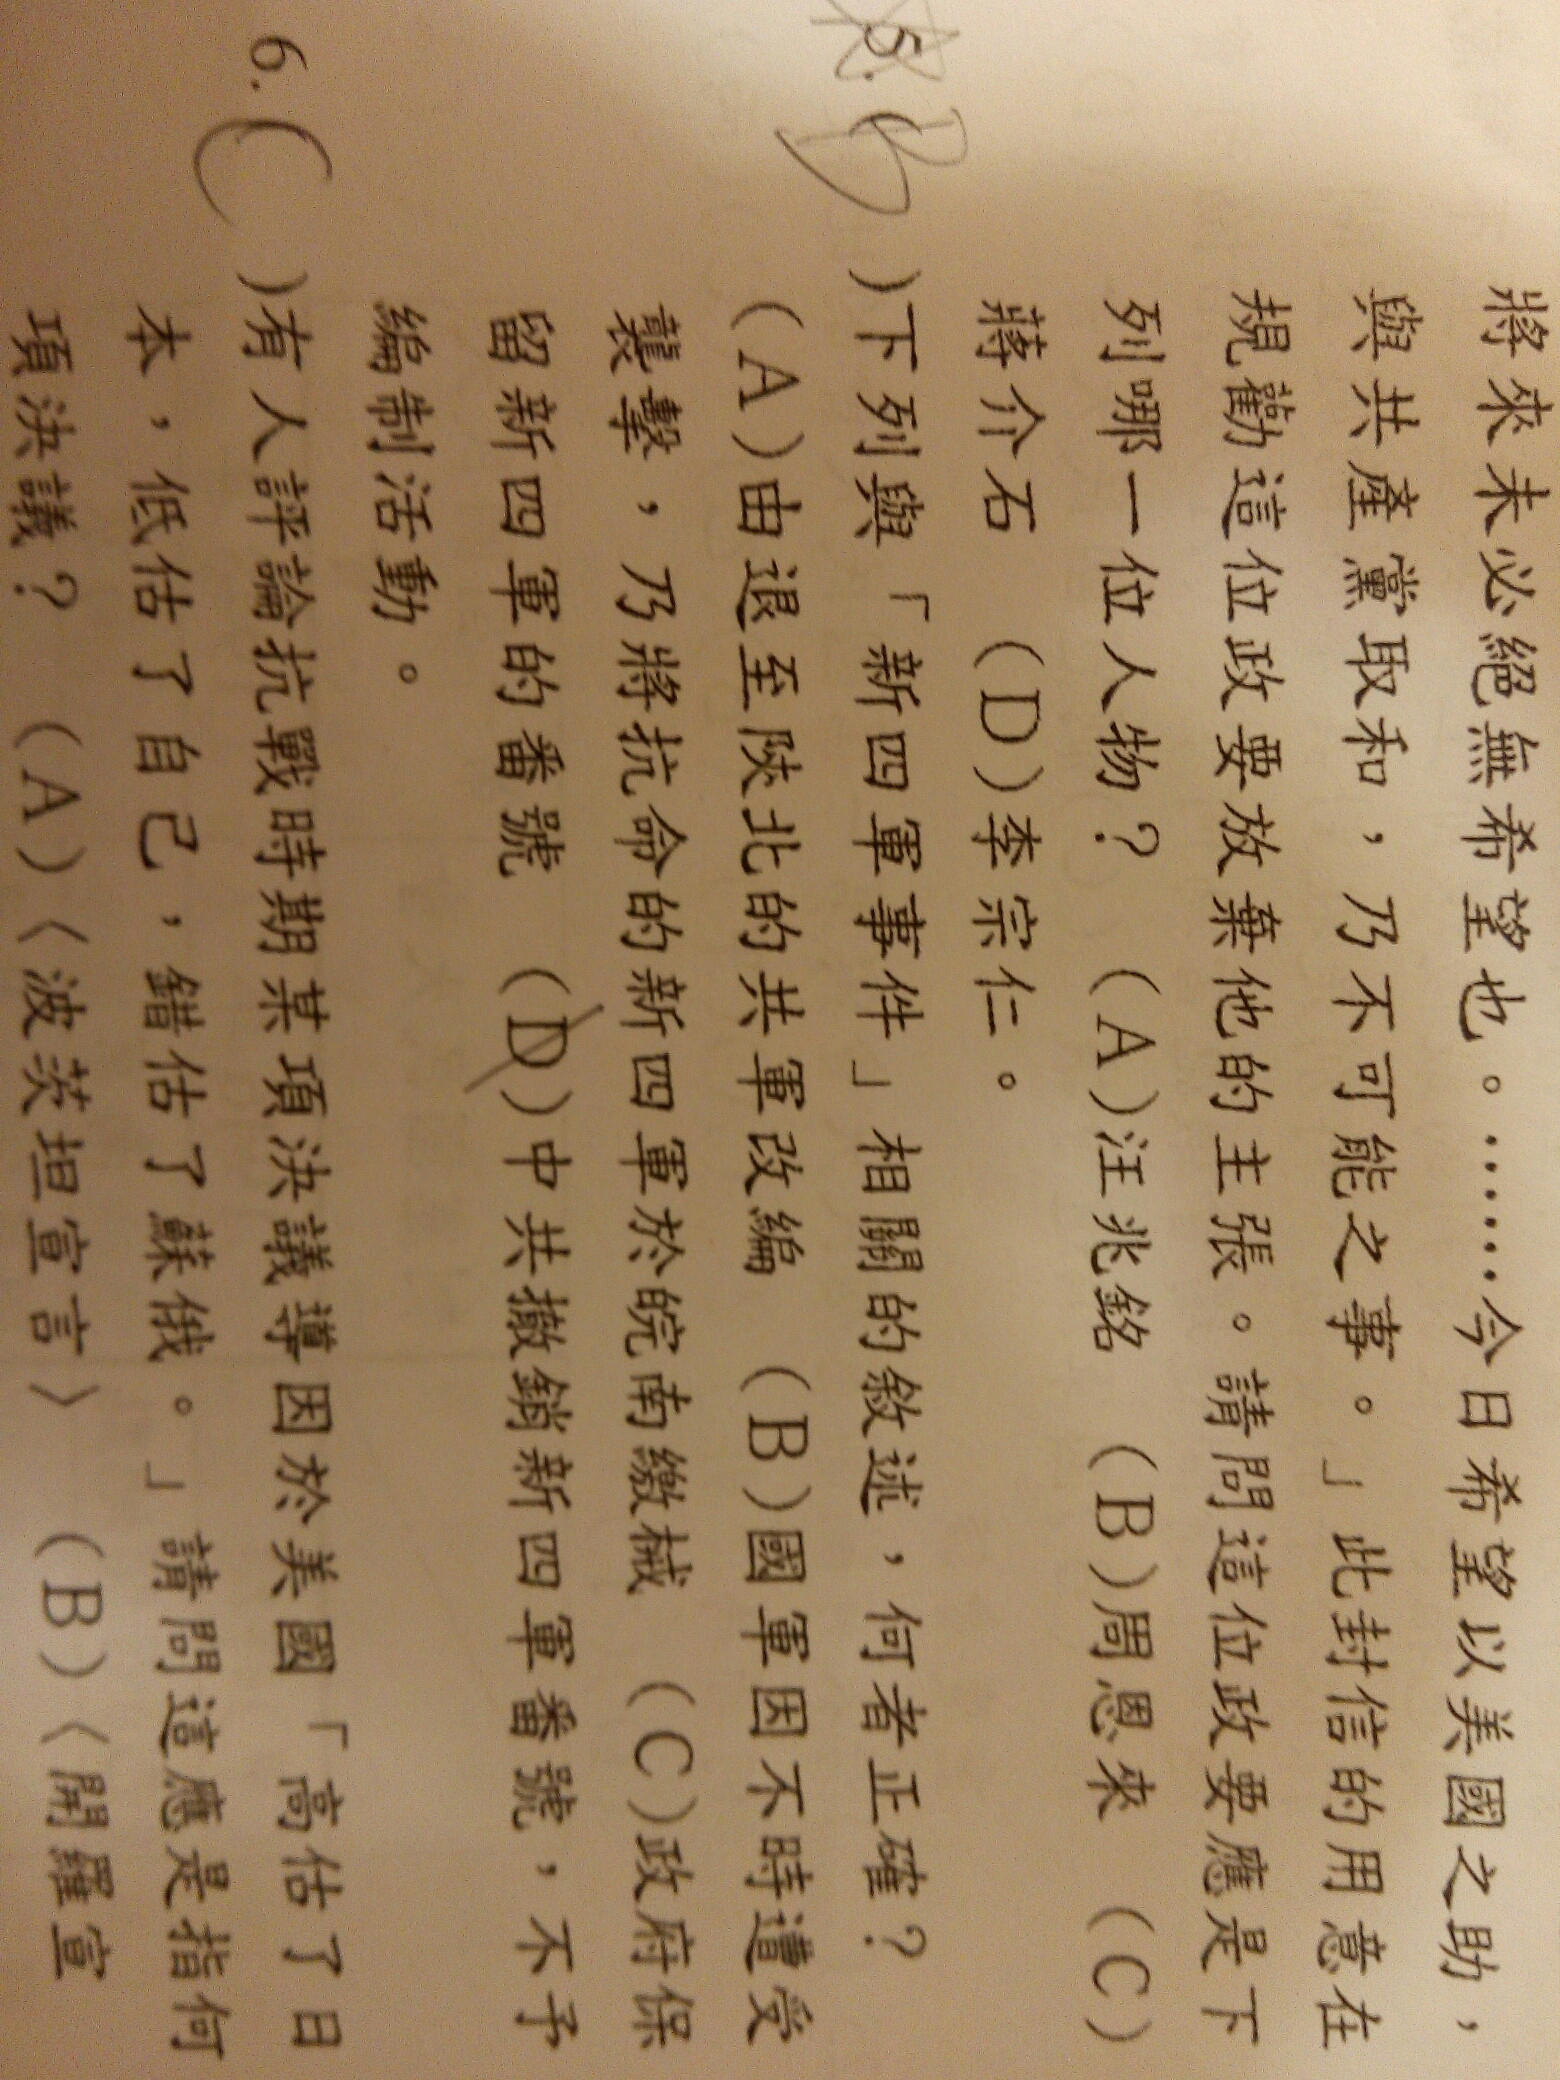 將來未必絕無希望也。………今日希望以美國之助，
與共產黨取和，乃不可能之事。」此封信的用意在
規勸這位政要放棄他的主張。請問這位政要應是下
列哪一位人物？ (A)汪兆銘 (B)周恩來 (C)
蔣介石 (D)李宗仁。
5.(B)下列與「新四軍事件」相關的敘述，何者正確？
(A)由退至陝北的共軍改編 (B)國軍因不時遭受
襲擊，乃將抗命的新四軍於皖南繳械 (C)政府保
留新四軍的番號 (D)中共撤銷新四軍番號，不予
編制活動。
6.(C)有人評論抗戰時期某項決議導因於美國「高估了日
本，低估了自己，錯估了蘇俄。」請問這應是指何
項決議？ (A)〈波茨坦宣言〉 (B)〈開羅宣